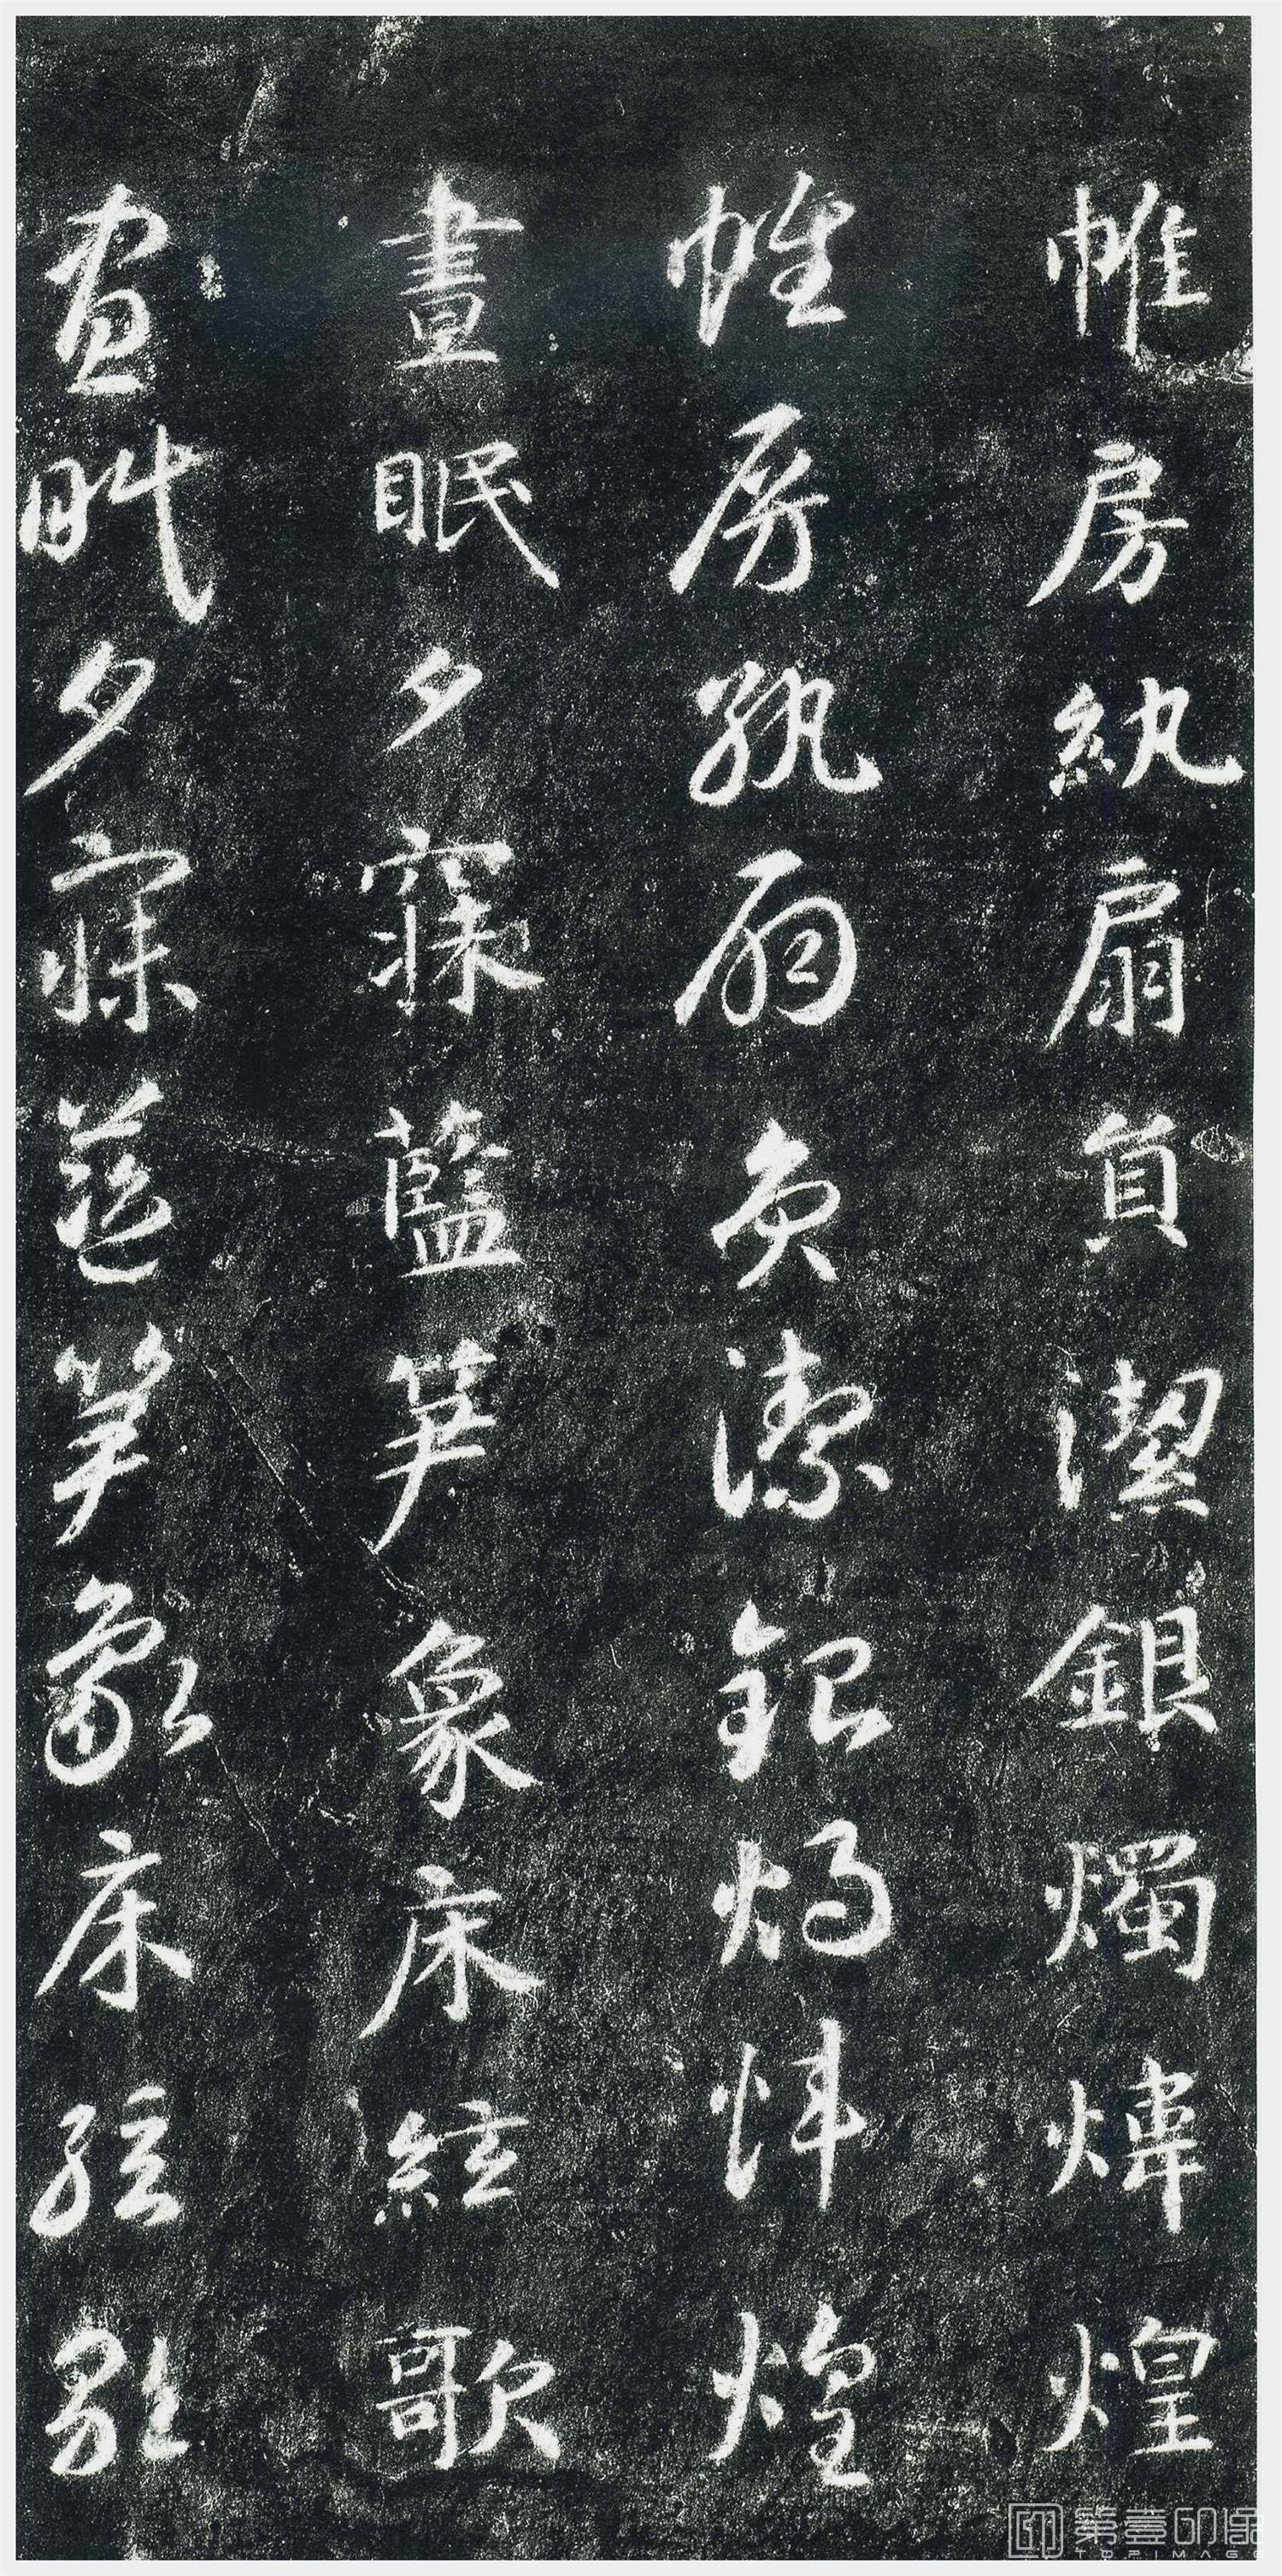 帷房紈扇員潔銀燭煒煌
帷房紈扇員潔銀燭煒煌
晝眠夕寐藍笋象床絃歌
晝眠夕寐藍笋象床絃歌
第壹印像
TOPIMAGE